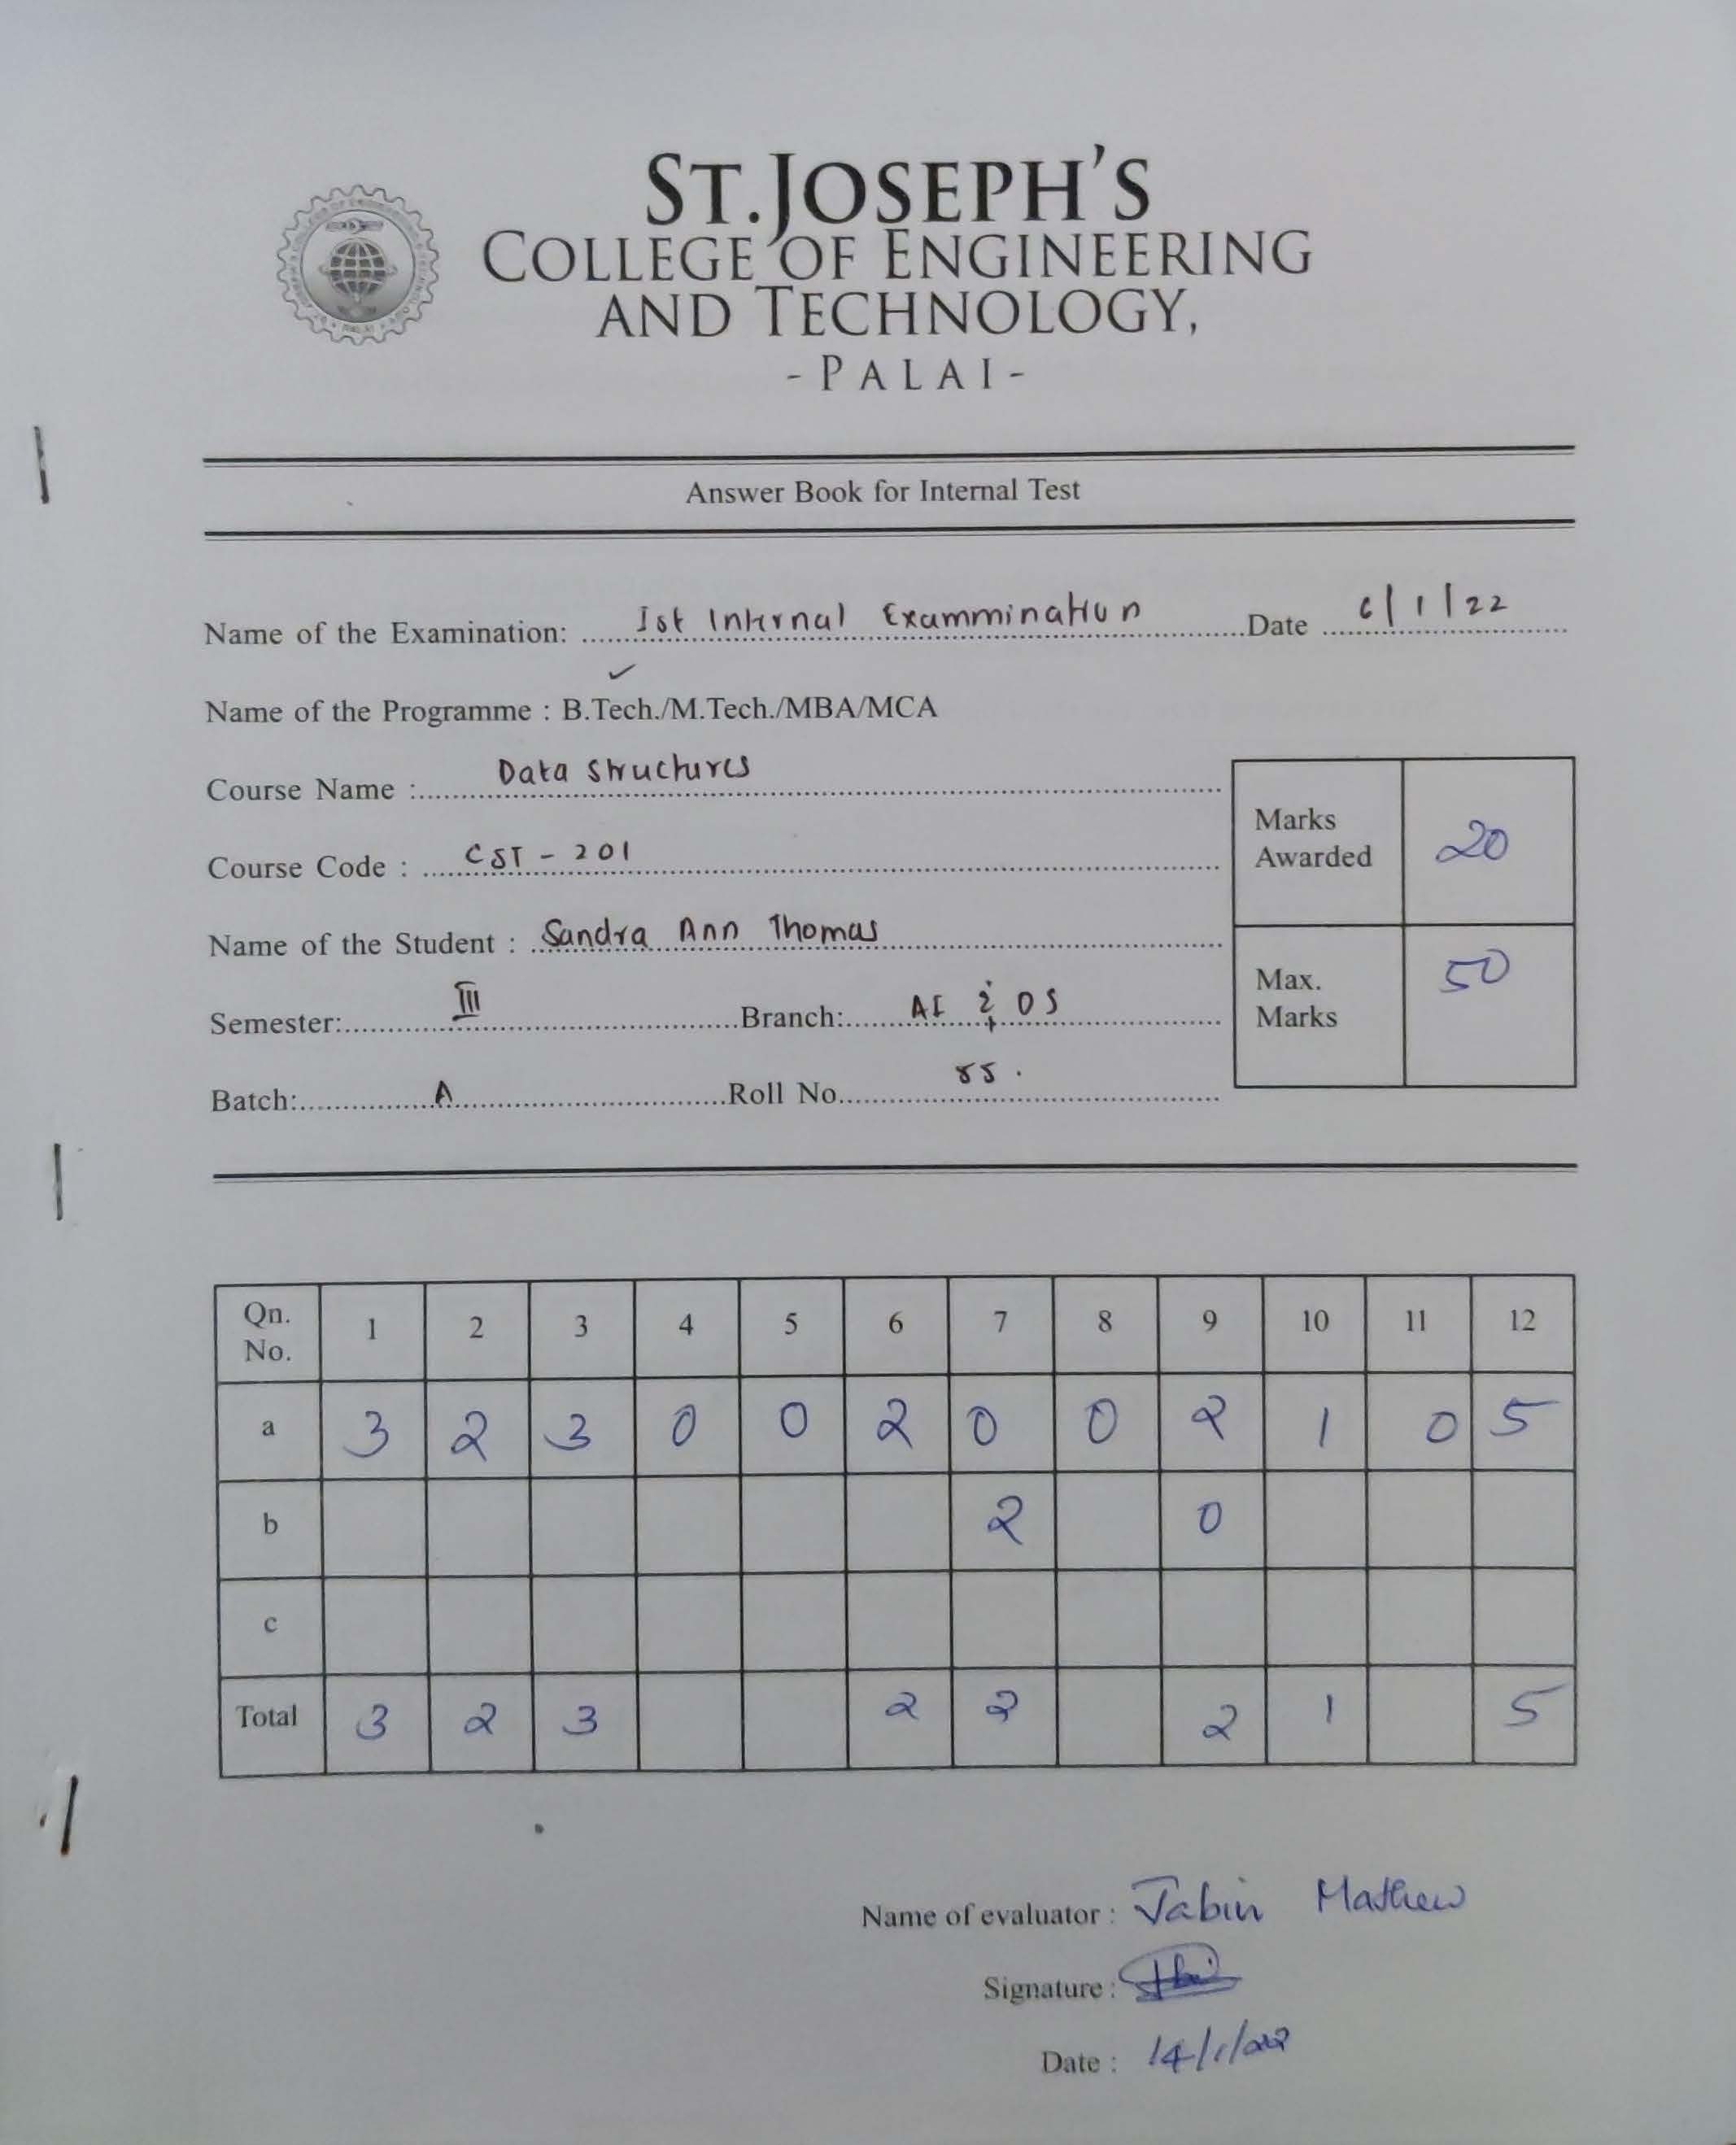 ST.JOSEPH'S
COLLEGE OF ENGINEERING
AND TECHNOLOGY,
- PALAI -
Answer Book for Internal Test
Name of the Examination: Ist Internal Exammination Date 6/1/22
Name of the Programme : B.Tech./M.Tech./MBA/MCA
Course Name : Data Structures
Course Code : CST - 201
Marks Awarded 20
Name of the Student : Sandra Ann Thomas
Max. Marks 50
Semester: III Branch: AI & DS
Batch: A Roll No. 55.
Qn. No. 1 2 3 4 5 6 7 8 9 10 11 12
a 3 2 3 0 0 2 0 0 2 1 0 5
b 2 0
c
Total 3 2 3 2 2 2 1 5
Name of evaluator : Jabin Mathew
Signature :
Date : 14/1/22